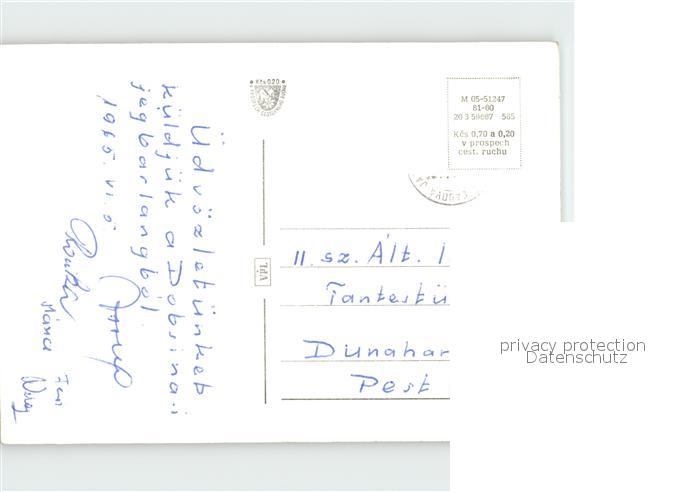 Üdvözletünket
küldjük a Dobsina-i
jégbarlangból
1965. VI. 5.
Mária
Kčs 0,20
M 05-51247
81-60
20 3 59607 565
Kčs 0,70 a 0,20
v prospech
cest. ruchu
VPL
II. sz. Ált. I
Tantestü
Dunahar
Pest
privacy protection
Datenschutz